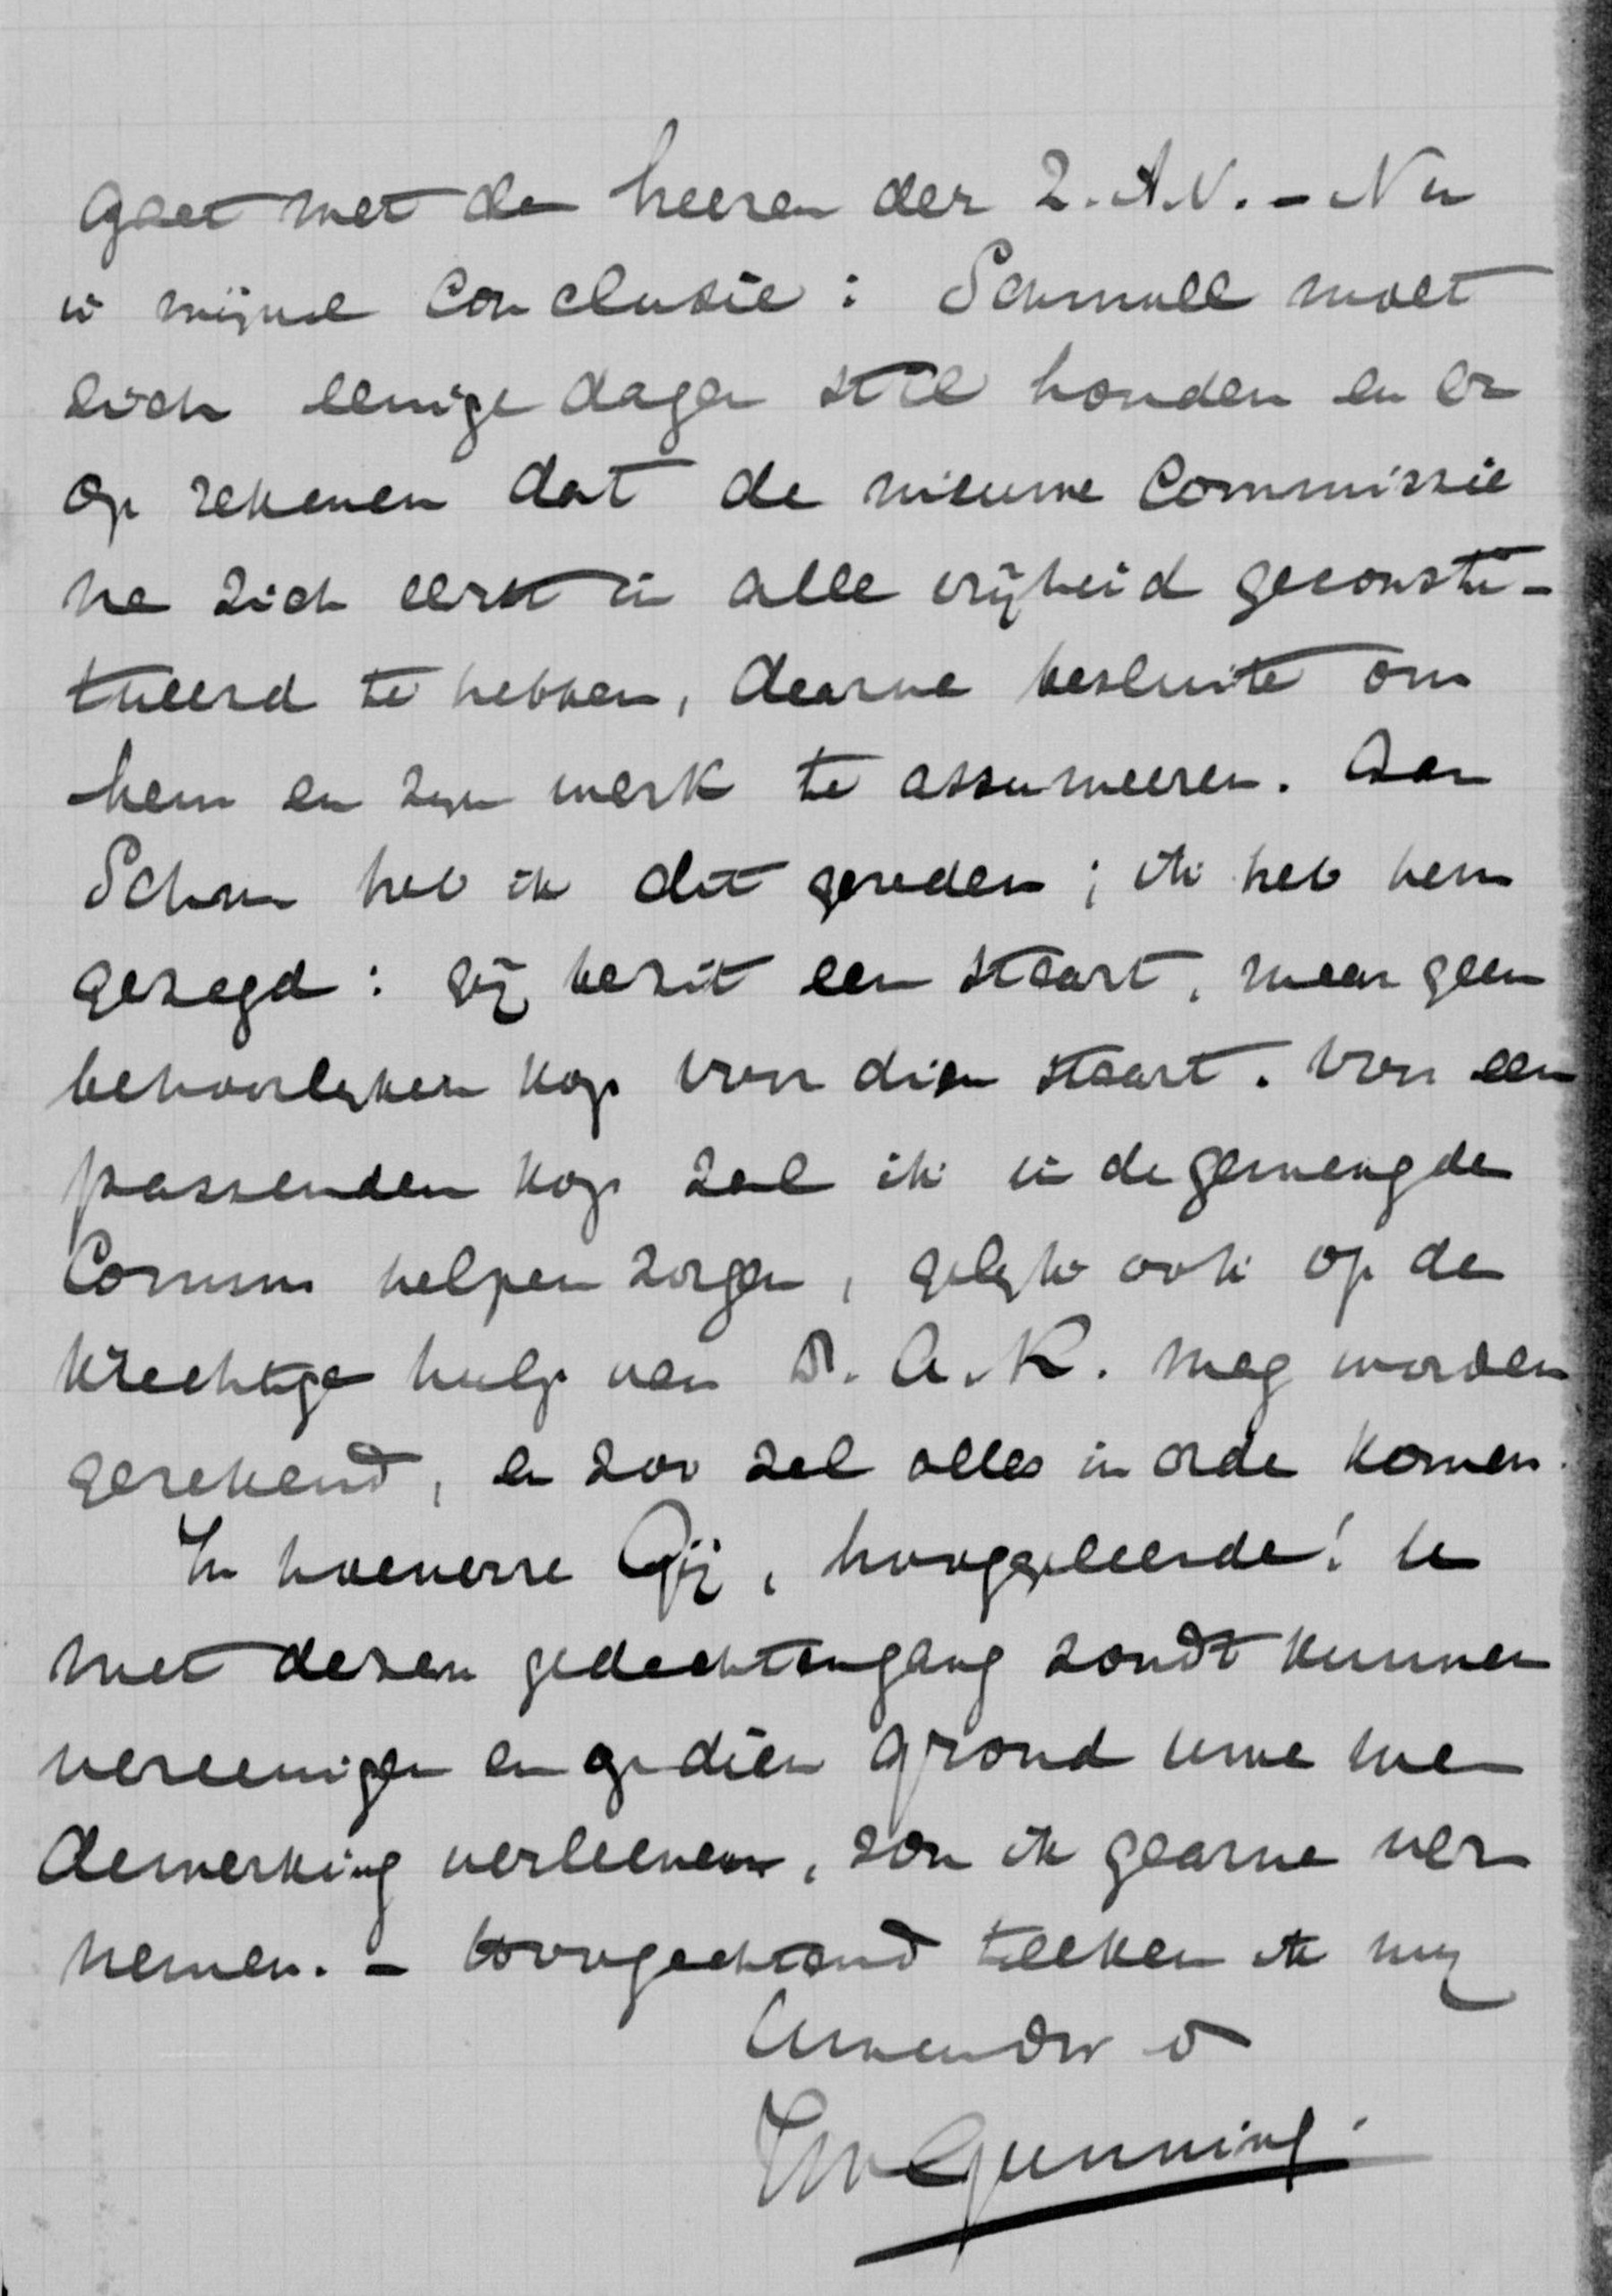 gaat met de heeren der Z.A.V. – Nu
is mijne conclusie: Schmull moet
zich eenige dagen stil houden en er
op rekenen dat de nieuwe Commissie
na zich eerst in alle vrijheid geconsti-
tueerd te hebben, daarna besluite om
hem en zijn werk te assumeeren. Aan
Schm heb ik dit geraden; ik heb hem
gezegd: gij bezit een staart, maar geen
behoorlijken kop voor dien staart. Voor een
passenden kop zal ik in de gemengde
Comm helpen zorgen, gelijk ook op de
krachtige hulp van Dr. A. K. mag worden
gerekend, en zoo zal alles in orde komen.
In hoeverre Gij, hooggeleerde! U
met dezen gedachtengang zoudt kunnen
vereenigen en op dien grond uwe me
dewerking verleenen, zou ik gaarne ver
nemen. – Hoogachtend teeken ik mij
Uw en dw d
JW Gunning.